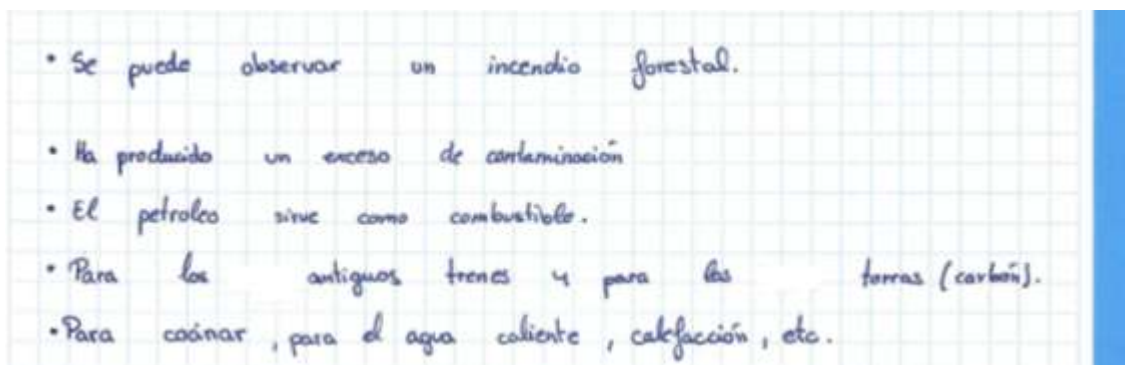 • Se puede observar un incendio forestal.
• Ha producido un exceso de contaminación
• El petroleo sirve como combustible.
• Para los antiguos trenes y para las torras (carbón).
• Para cocinar, para el agua caliente, calefacción, etc.